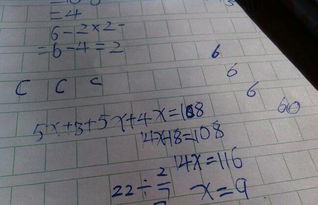 =4
6-2×2=
=6-4=2
6
C C C
6
6
60
5x+3+5x+4x=108
14x+8=108
14x=116
22÷2/7 x=9